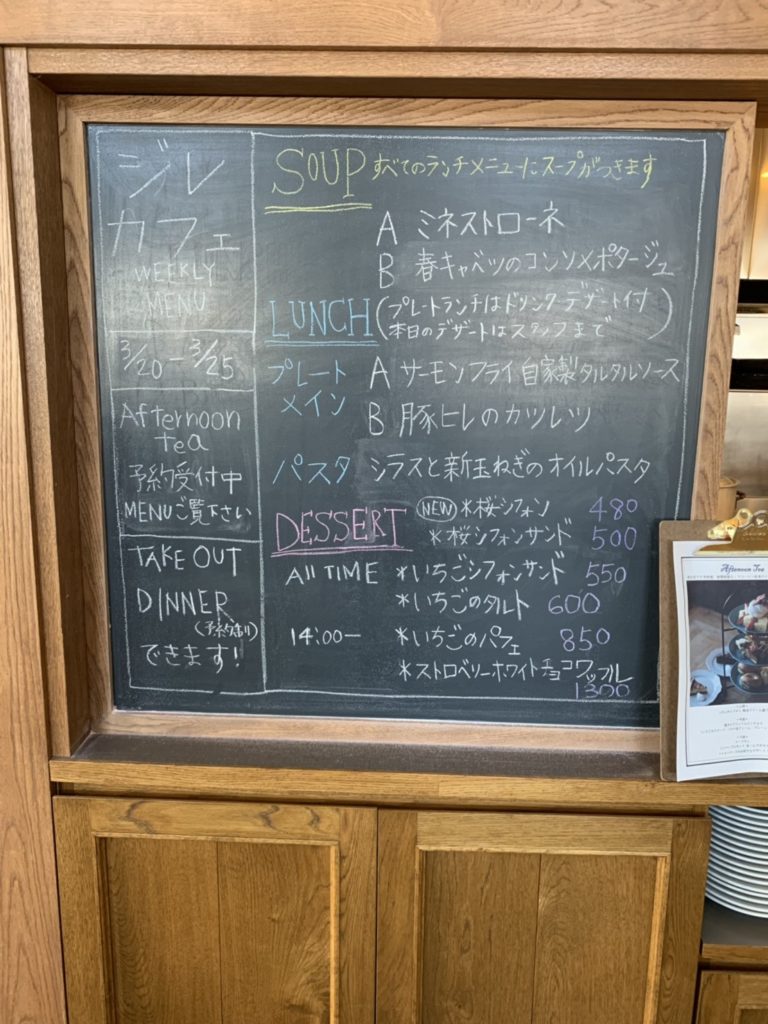 ジレ
カフェ
WEEKLY
MENU
3/20 - 3/25
Afternoon
tea
予約受付中
MENUご覧下さい
TAKE OUT
DINNER
(予約有り)
できます!
SOUP すべてのランチメニューにスープがつきます
A ミネストローネ
B 春キャベツのコンソメポタージュ
LUNCH (プレートランチはドリンクデザート付
本日のデザートはスタッフまで)
プレート
メイン
A サーモンフライ自家製タルタルソース
B 豚ヒレのカツレツ
パスタ シラスと新玉ねぎのオイルパスタ
DESSERT NEW *桜シフォン 480
*桜シフォンサンド 500
All TIME *いちごシフォンサンド 550
*いちごのタルト 600
14:00- *いちごのパフェ 850
*ストロベリーホワイトチョコワッフル
1300
Afternoon Tea